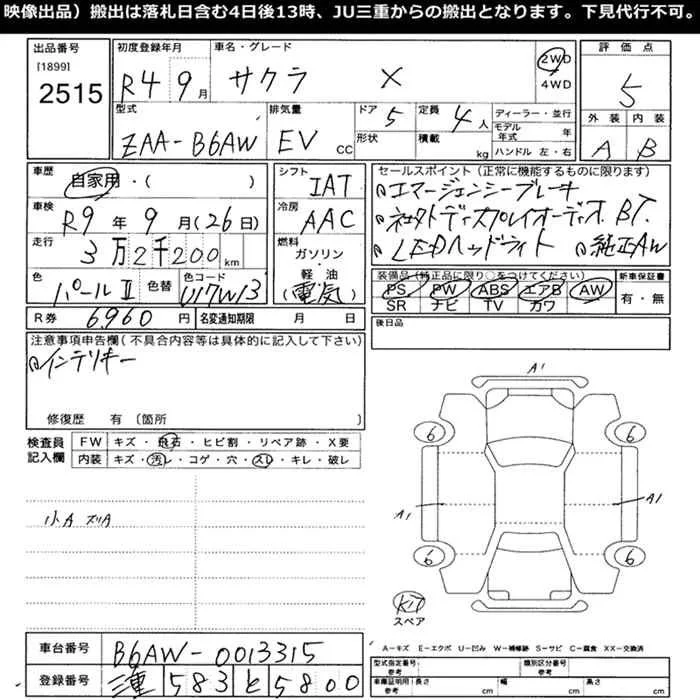 映像出品）搬出は落札日含む4日後13時、JU三重からの搬出となります。下見代行不可。
出品番号
[1899]
2515
初度登録年月
R4 9月
車名・グレード
サクラ X
2WD
4WD
評価点
5
外装 内装
A B
型式
ZAA-B6AW
排気量
EV CC
ドア 5
形状
定員 4人
積載 kg
ディーラー・並行
モデル年式 年
ハンドル 左・右
車歴
自家用・( )
車検
R9年9月(26日)
走行
3万2千200km
色
パールⅡ
色替
色コード
シフト
IAT
冷房
AAC
燃料
ガソリン
・
軽油
(電気)
セールスポイント（正常に機能するものに限ります）
エマージェンシーブレーキ
ディスプレイオーディオ. BT.
LEDヘッドライト 純正AW
装備品（純品に限り○をつけてください）
PS PW ABS エアB AW
SR ナビ TV カワ
新車保証書
有・無
R券 6,960円
名変通知期限 月 日
後日品
注意事項申告欄（不具合内容等は具体的に記入して下さい）
インテリキー
修復歴 有〔箇所 〕
検査員
記入欄
FW キズ・飛石・ヒビ割・リペア跡・X要
内装 キズ・汚レ・コゲ・穴・スレ・キレ・破レ
小A
A1
6 6
A1 A1
6 6
スペア
A－キズ E－エクボ U－凹み W－補修跡 S－サビ C－腐食 XX－交換済
車台番号 B6AW-0013315
登録番号 三重 583 と 5800
型式指定番号 参考
類別区分番号 参考
車庫証明用 参考
長さ cm
幅 cm
高さ cm